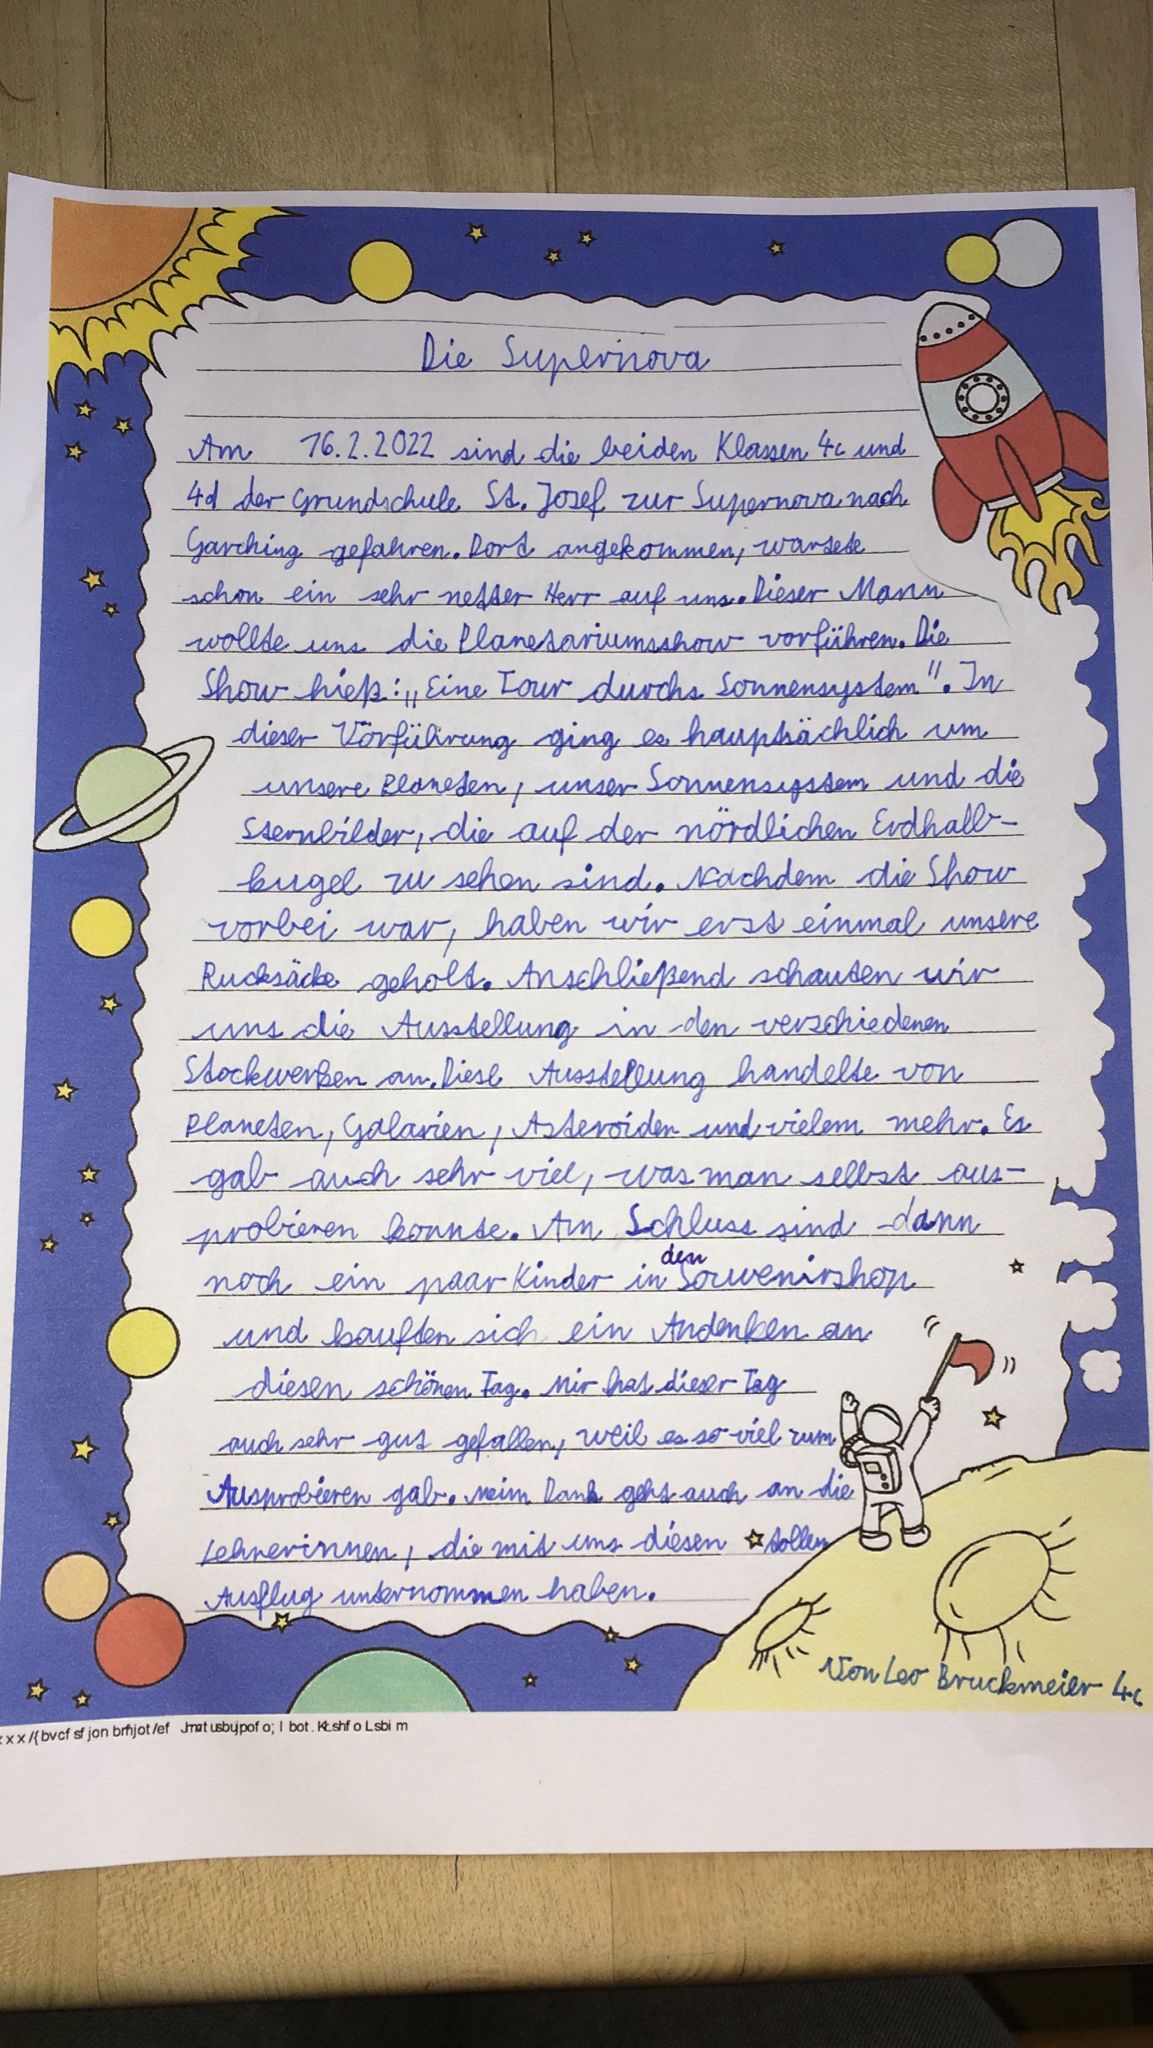 Die Supernova
Am 16.2.2022 sind die beiden Klassen 4c und
4d der Grundschule St. Josef zur Supernova nach
Garching gefahren. Dort angekommen, wartete
schon ein sehr netter Herr auf uns. Dieser Mann
wollte uns die Planetariumsshow vorführen. Die
Show hieß: „Eine Tour durchs Sonnensystem". In
dieser Vorführung ging es hauptsächlich um
unsere Planeten, unser Sonnensystem und die
Sternbilder, die auf der nördlichen Erdhalb-
kugel zu sehen sind. Nachdem die Show
vorbei war, haben wir erst einmal unsere
Rucksäcke geholt. Anschließend schauten wir
uns die Ausstellung in den verschiedenen
Stockwerken an. Diese Ausstellung handelte von
Planeten, Galaxien, Asteroiden und vielem mehr. Es
gab auch sehr viel, was man selbst aus-
probieren konnte. Am Schluss sind dann
noch ein paar Kinder in den Souvenirshop
und kauften sich ein Andenken an
diesen schönen Tag. Mir hat dieser Tag
auch sehr gut gefallen, weil es so viel zum
Ausprobieren gab. Mein Dank geht auch an die
Lehrerinnen, die mit uns diesen tollen
Ausflug unternommen haben.
Von Leo Bruckmeier 4c